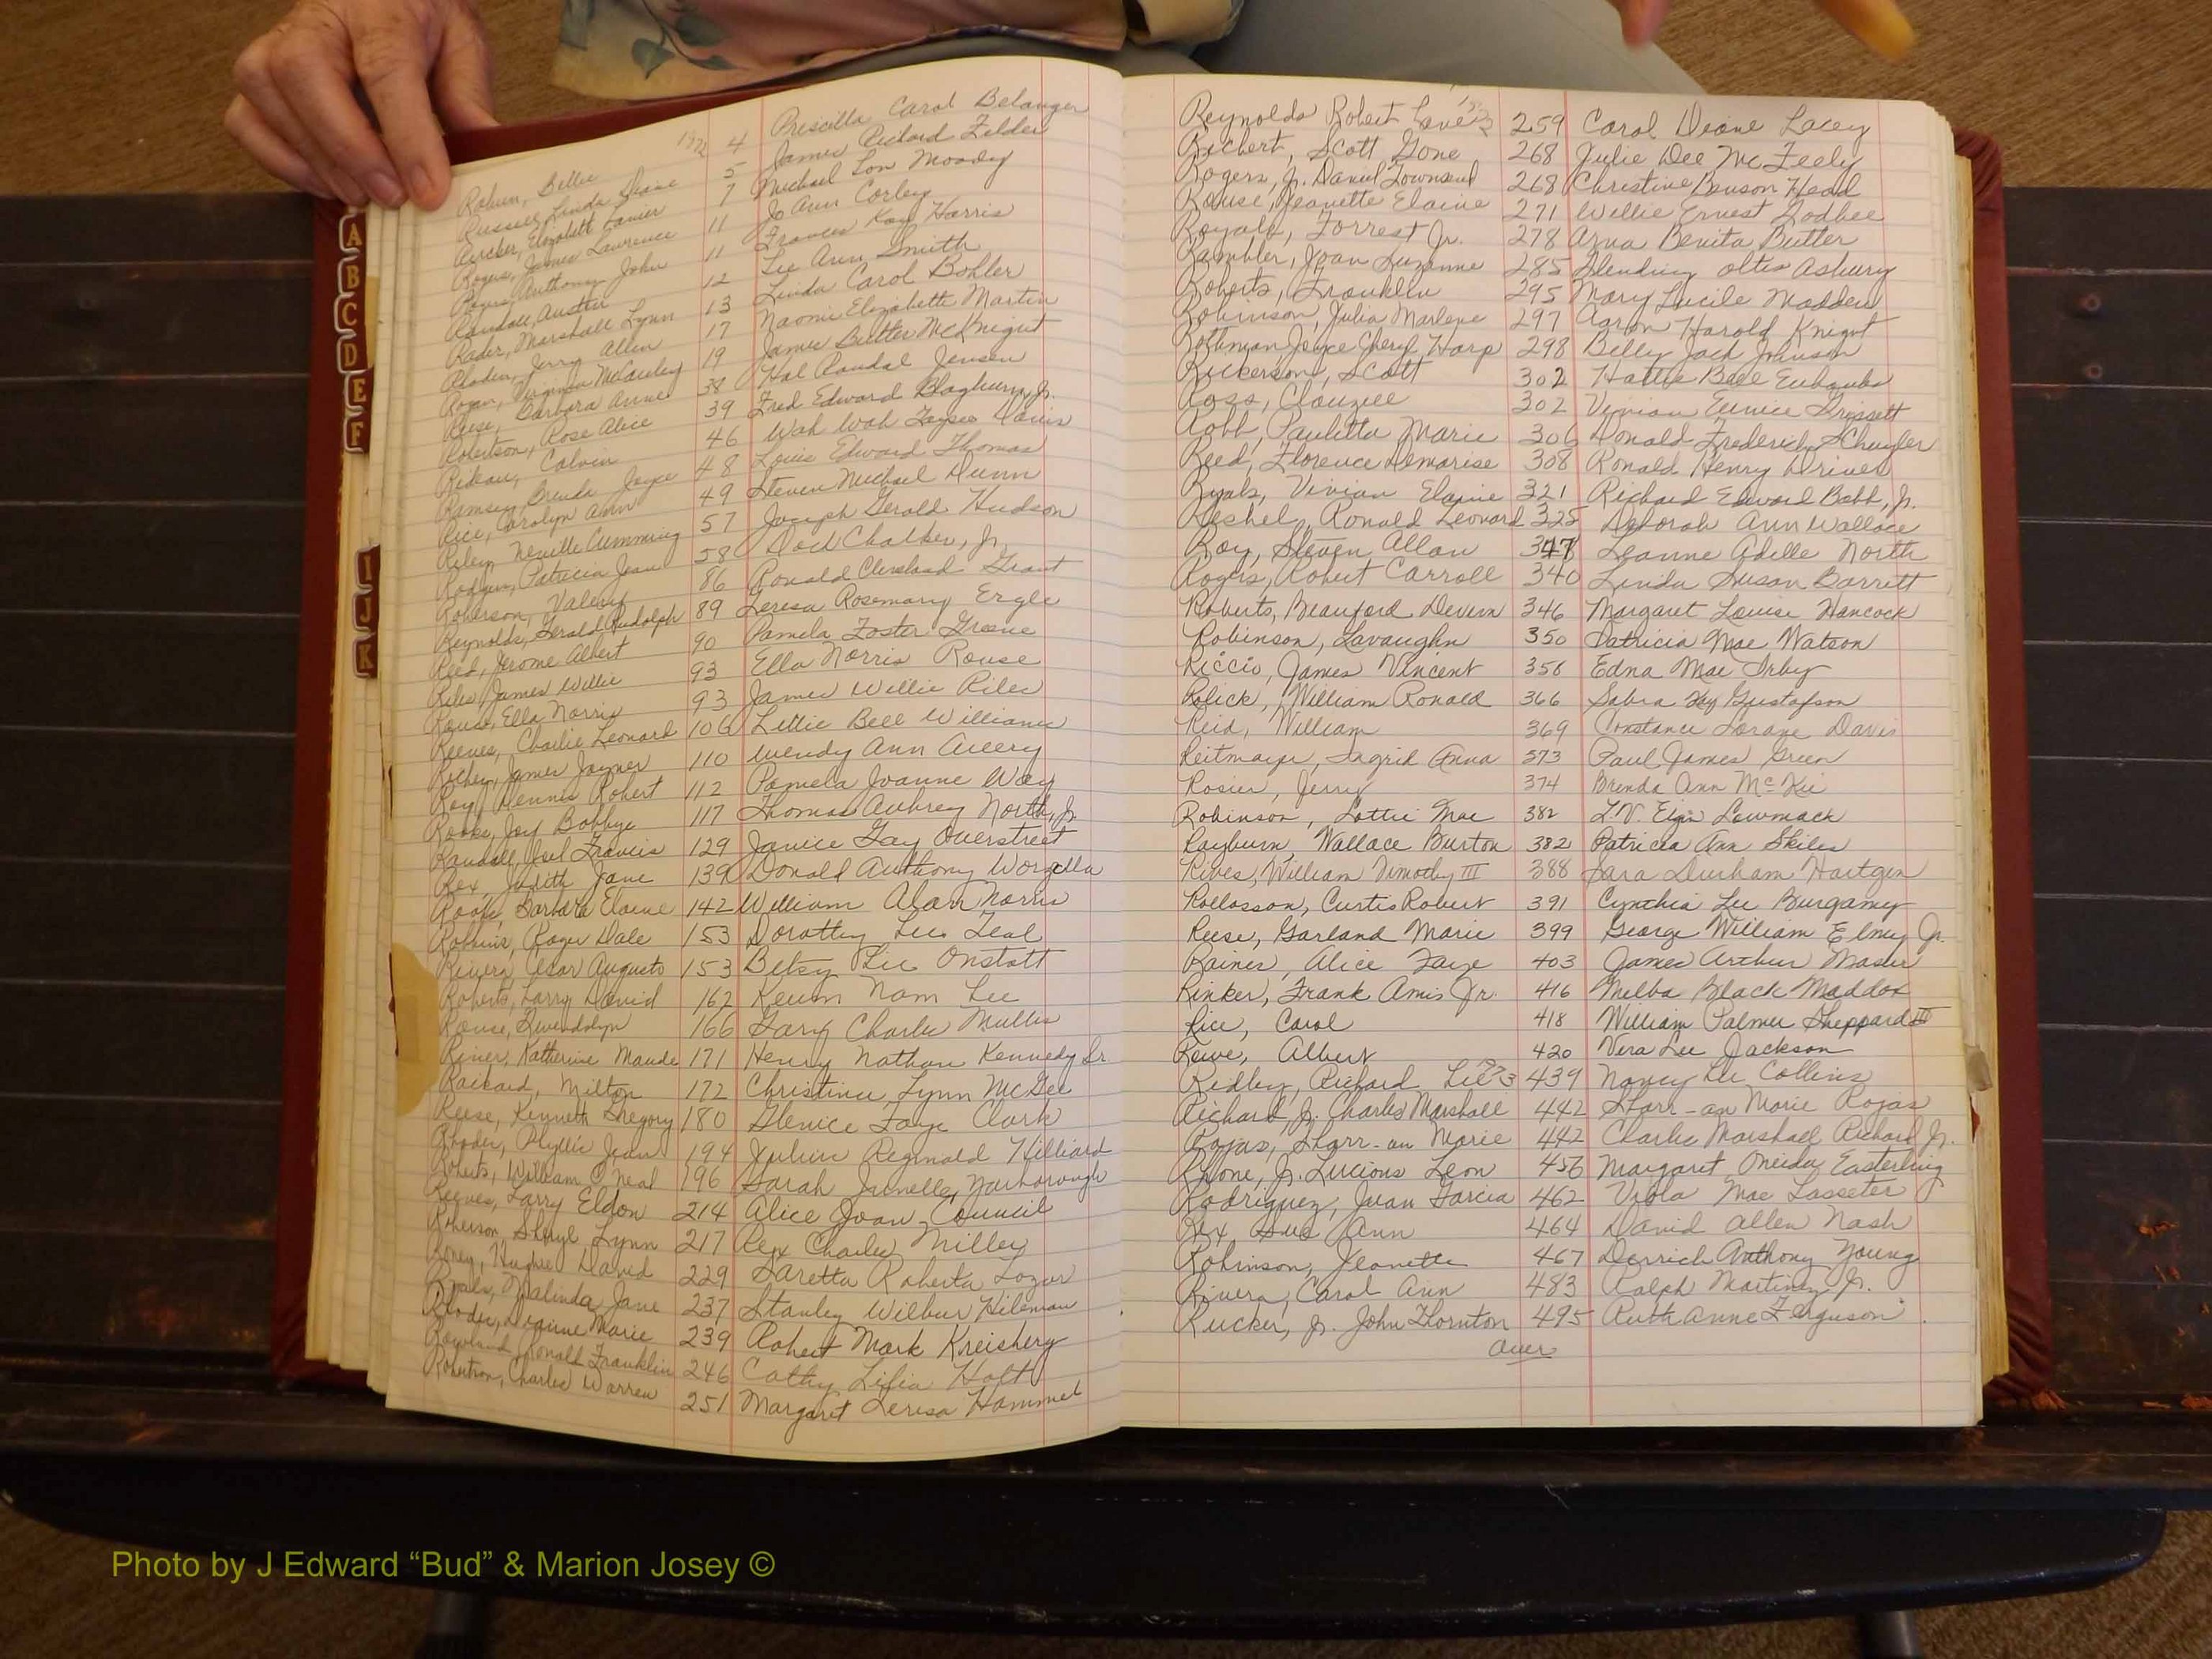 1972
Raburn, Billie 4 Priscilla Carol Belanger
Russell, Linda Diane 5 James Richard Felder
Rucker, Elizabeth Lanier 7 Michael Lon Moody
Rogers, James Lawrence 11 Jo Ann Corley
Anthony John 11 Frances Kay Harris
Randall, Austin 12 Lee Ann Smith
Rader, Marshall Lynn 13 Linda Carol Bohler
Rhoden, Jerry Allen 17 Naomi Elizabeth Martin
19 James Butler McKnight
Reese, Barbara Anne 38 Hal Randal Jensen
Robertson, Rose Alice 39 Fred Edward Jr.
Rideau, Calvin 46 Wah Wah Davis
Ramsey, Brenda Joyce 48 Louis Edward Thomas
Rice, Carolyn Ann 49 Steven Michael Dunn
Riley, Neville Cumming 57 Joseph Gerald Hudson
Rodgers, Patricia Jean 58 Chalker, Jr.
Roberson, Valery 86 Ronald Cleveland Grant
Reynolds, Gerald Rudolph 89 Teresa Rosemary Ergle
Reid, Jerome Albert 90 Pamela Foster Greene
Riles, James Willie 93 Ella Norris Rouse
Rouse, Ella Norris 93 James Willie Riles
Reeves, Charlie Leonard 106 Lettie Bell Williams
Richey, James Joyner 110 Wendy Ann Avery
Roy, Dennis Robert 112 Pamela Joanne Way
Rooks, Joy Bobbye 117 Thomas Aubrey North, Jr.
Randall, Joel Francis 129 Janice Gay Overstreet
Rex, Judith Jane 139 Donald Anthony
Barbara Elaine 142 William Alan Norris
Robbins, Roger Dale 153 Dorothy Lee Teal
Rivera, Cesar Augusto 153 Betsy Lee Onstott
Roberts, Larry David 162 Keum Nam Lee
Rouse, Gwendolyn 166 Gary Charles Mullis
Riner, Katherine Maude 171 Henry Nathan Kennedy Sr
Rackard, Milton 172 Christine Lynn McGee
Reese, Kenneth Gregory 180 Glenice Faye Clark
Rhodes, Phyllis Jean 194 Julius Reginald Hilliard
Roberts, William O'Neal 196 Sarah Junelle Yarborough
Reeves, Larry Eldon 214 Alice Joan Council
Roberson, Sheryl Lynn 217 Rex Charles Miller
Roney, Hughie David 229 Laretta Roberta Lozar
Ryals, Malinda Jane 237 Stanley Wilbur Hileman
Rhoden, Dianne Marie 239 Robert Mark Kreisberg
Rowland, Ronald Franklin 246 Cathy Holt
Robertson, Charles Warren 251 Margaret Teresa Hammel
Reynolds Robert Lane 259 Carol Diane Lacey
Richert, Scott Gene 268 Julie Dee McFeely
Rogers, Jr. Daniel Townsend 268 Christine Benson Head
Rouse, Jeanette Elaine 271 Willie Ernest Godbee
Royals, Forrest Jr. 278 Benita Butler
Rambler, Joan Suzanne 285 Asbury
Roberts, Franklin 295 Mary Lucile Madden
Robinson, Julia Marlene 297 Aaron Harold Knight
Rothman Joyce Cheryl Harp 298 Billy Jack Johnson
Rickerson, Scott 302 Hattie Bell Eubanks
Ross, 302 Vivian Eunice Grissett
Robb, Pauletta Marie 306 Donald Frederick Schuyler
Reed, Florence Demarise 308 Ronald Henry Driver
Ryals, Vivian Elaine 321 Richard Edward Babb, Jr.
Reshel, Ronald Leonard 325 Deborah Ann Wallace
Roy, Steven Allan Leanne Adelle North
Rogers, Robert Carroll 340 Linda Susan Barrett
Roberts, Beauford Devern 346 Margaret Louise Hancock
Robinson, Lavaughn 350 Patricia Mae Watson
Riccio, James Vincent 356 Edna Mae Irby
Rolick, William Ronald 366 Sabra Kay Gustafson
Reid, William 369 Constance Lorane Davis
Reitmayer, Ingrid Anna 373 Paul James Green
Rosier, Jerry 374 Brenda Ann McKie
Robinson, Lottie Mae 382 L.V. Lowmack
Rayburn, Wallace Burton 382 Patricia Ann Skiles
Rives, William Timothy III 388 Sara Durham Hartgen
Rollosson, Curtis Robert 391 Cynthia Lee Burgamy
Reese, Garland Marie 399 George William Jr.
Raines, Alice Faye 403 James Arthur
Rinker, Frank Amis Jr. 416 Melba Black Maddox
Rice, Carol 418 William Palmer Sheppard III
Rowe, Albert 420 Vera Lee Jackson
Ridley, Richard Lee 439 Nancy Lee Collins
Richard, Jr. Charles Marshall 442 Sharr-an Marie Rojas
Rojas, Sharr-an Marie 442 Charles Marshall Richard, Jr.
Rhone, Jr. Lucious Leon 456 Margaret Oneida Easterling
Rodriguez, Juan Garcia 462 Viola Mae Lasseter
Rex, Sue Ann 464 David Allen Nash
Robinson, Jeanette 467 Derrick Anthony Young
Rivera, Carol Ann 483 Ralph Martinez, Jr.
Rucker, Jr. John Thornton 495 Ruth Anne Ferguson
over
A
B
C
D
E
F
I
J
K
Photo by J Edward “Bud” & Marion Josey ©